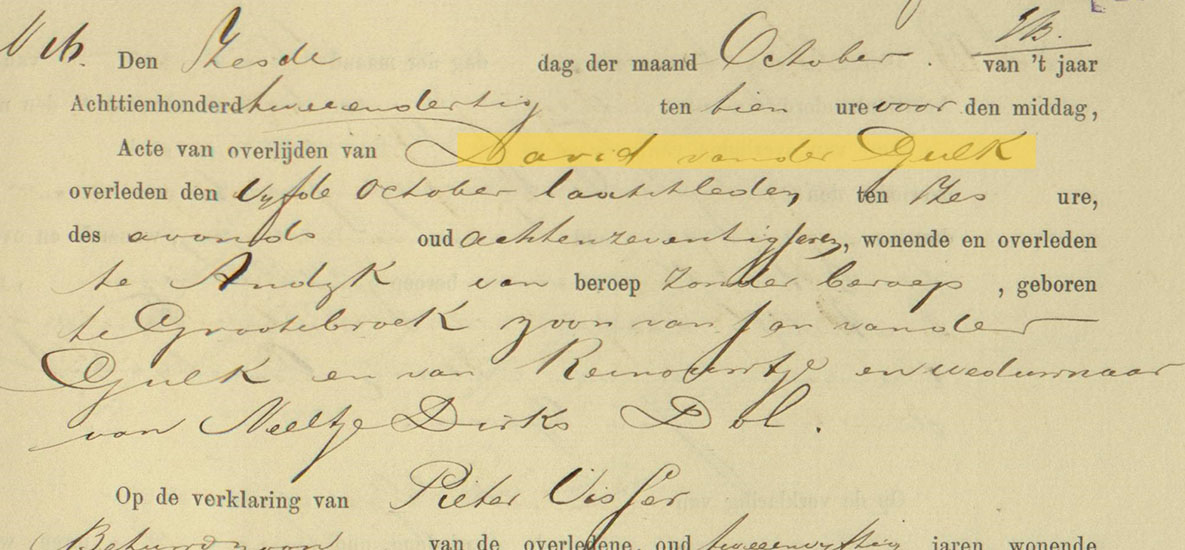 N 16. Den Zesde dag der maand October. van 't jaar
Achttienhonderd tweeendertig ten tien ure voor den middag,
Acte van overlijden van David van der Gulk
overleden den vyfde October laatstleden, ten zes ure,
des avonds oud achtenzeventig jaren, wonende en overleden
te Andyk van beroep zonder beroep , geboren
te Grootebroek zoon van Jan van der
Gulk en van Reinouwtje en weduwnaar
van Neeltje Dirks Dol.
Op de verklaring van Pieter Visser
Behuwdzoon van de overledene, oud tweeenvyftig jaren, wonende